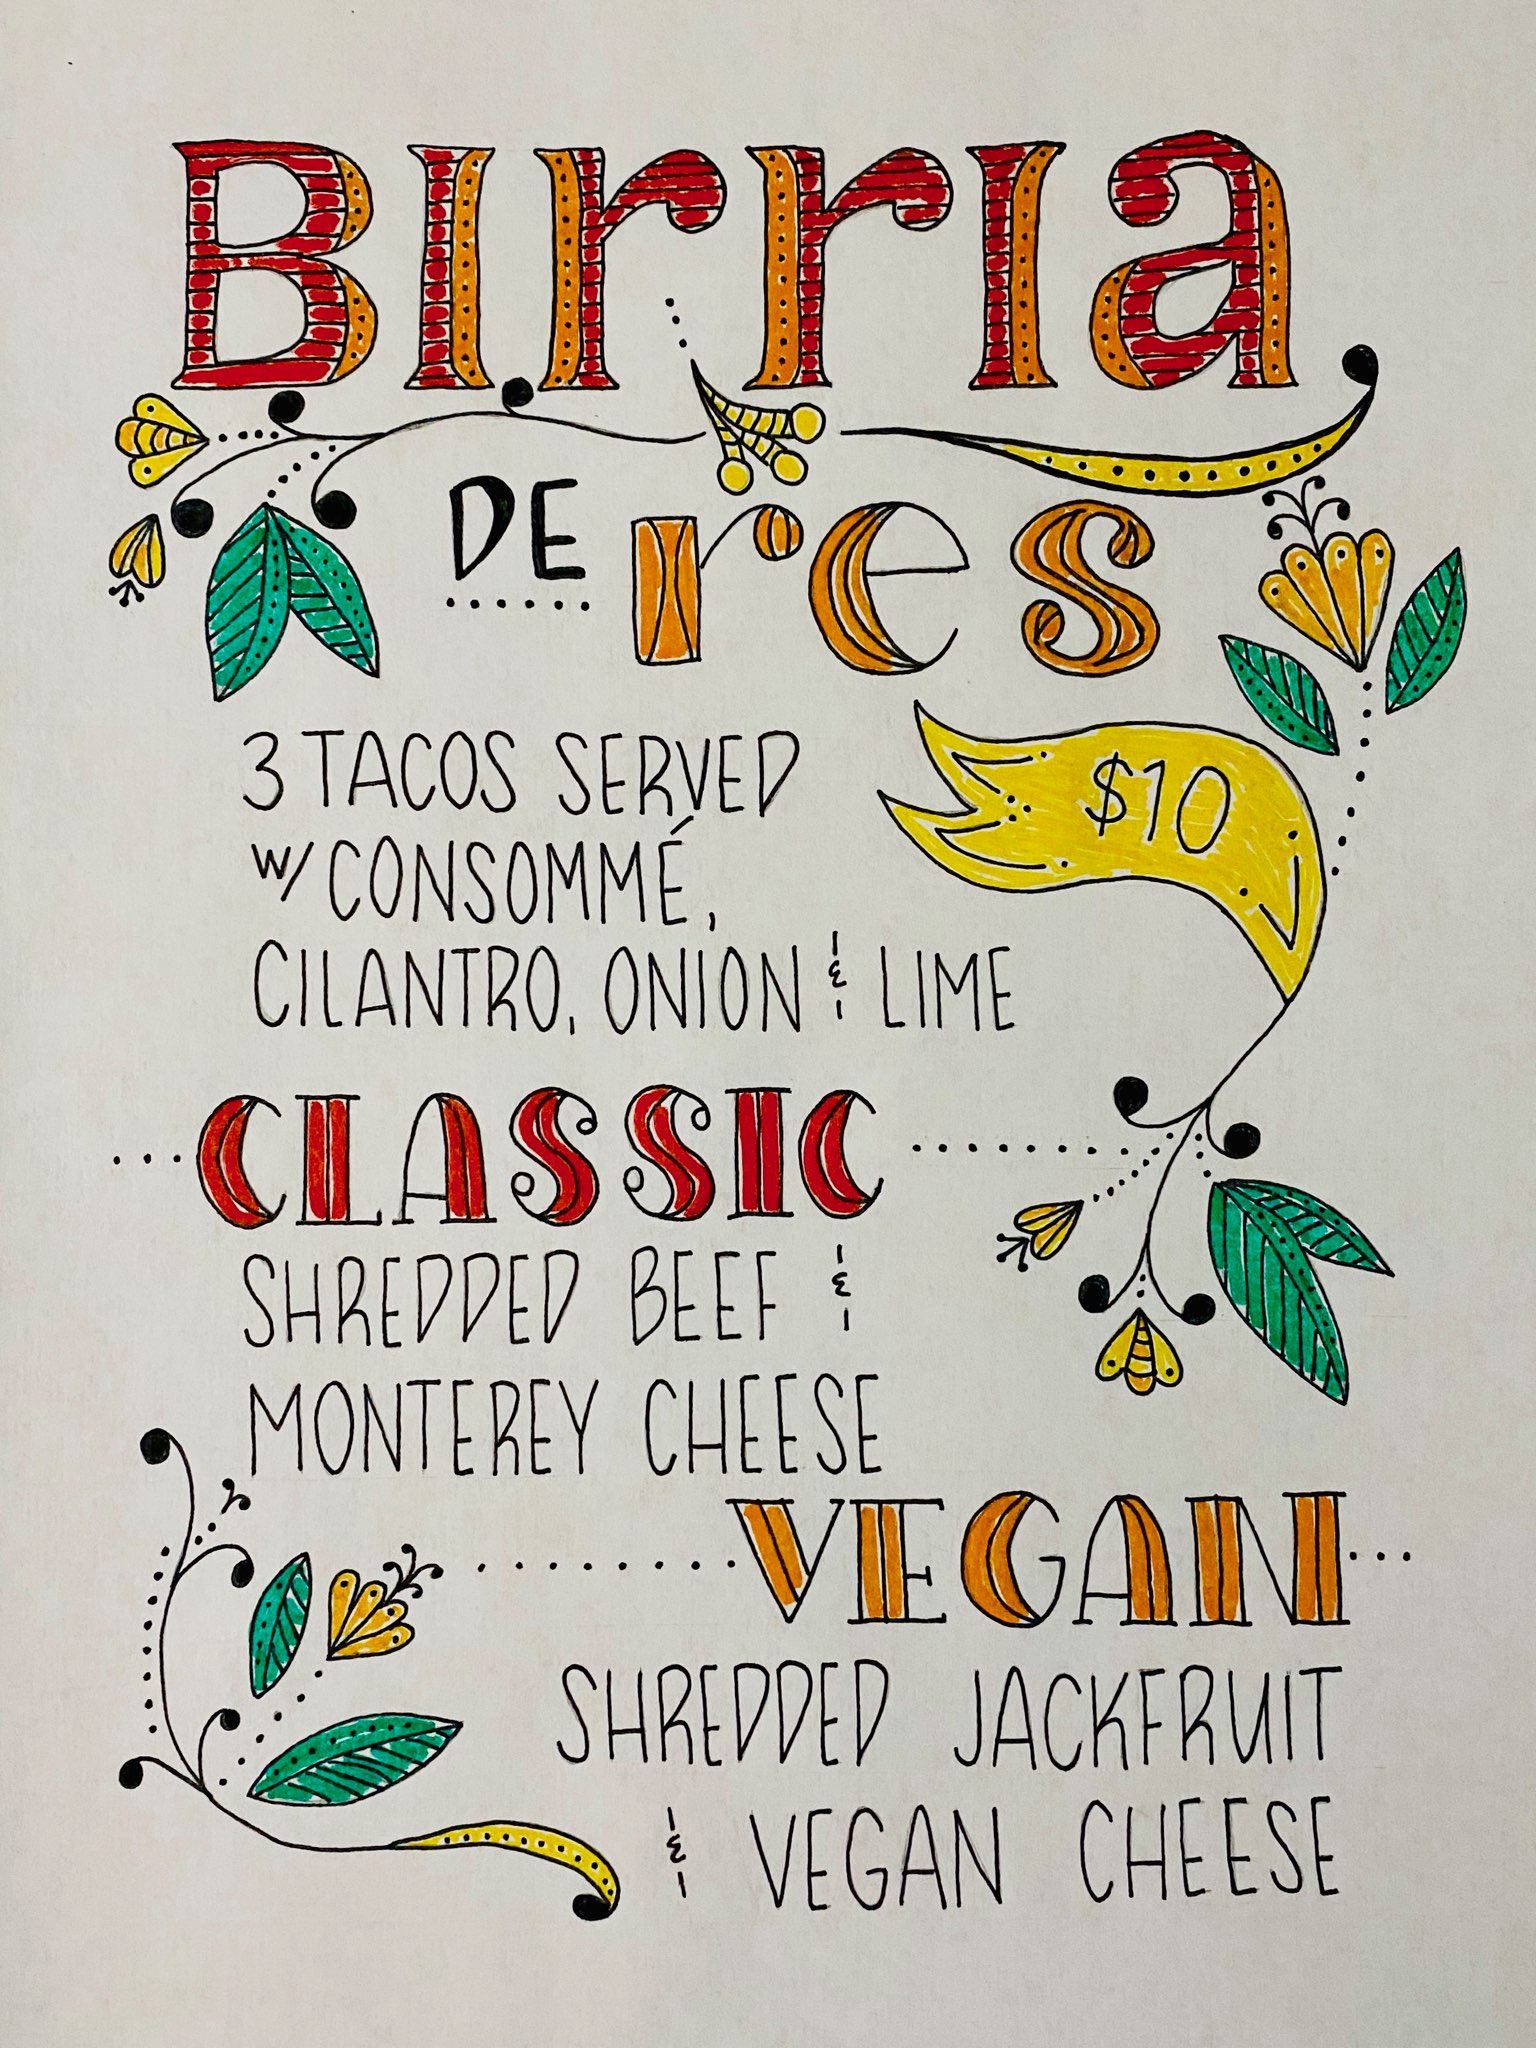 Birria
DE res
3 TACOS SERVED
w/ CONSOMMÉ,
$10
CILANTRO, ONION & LIME
CLASSIC
SHREDDED BEEF &
MONTEREY CHEESE
VEGAN
SHREDDED JACKFRUIT
& VEGAN CHEESE